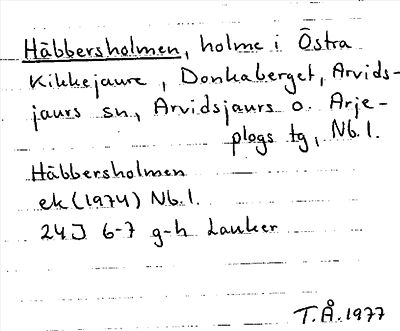 Häbbersholmen, holme i Östra
Kikkejaure, Donkaberget, Arvids-
jaurs sn, Arvidsjaurs o. Arje-
plogs tg, Nb.l.
Häbbersholmen
ek (1974) Nb.l.
24J 6-7 g-h Lauker
T.Å. 1977